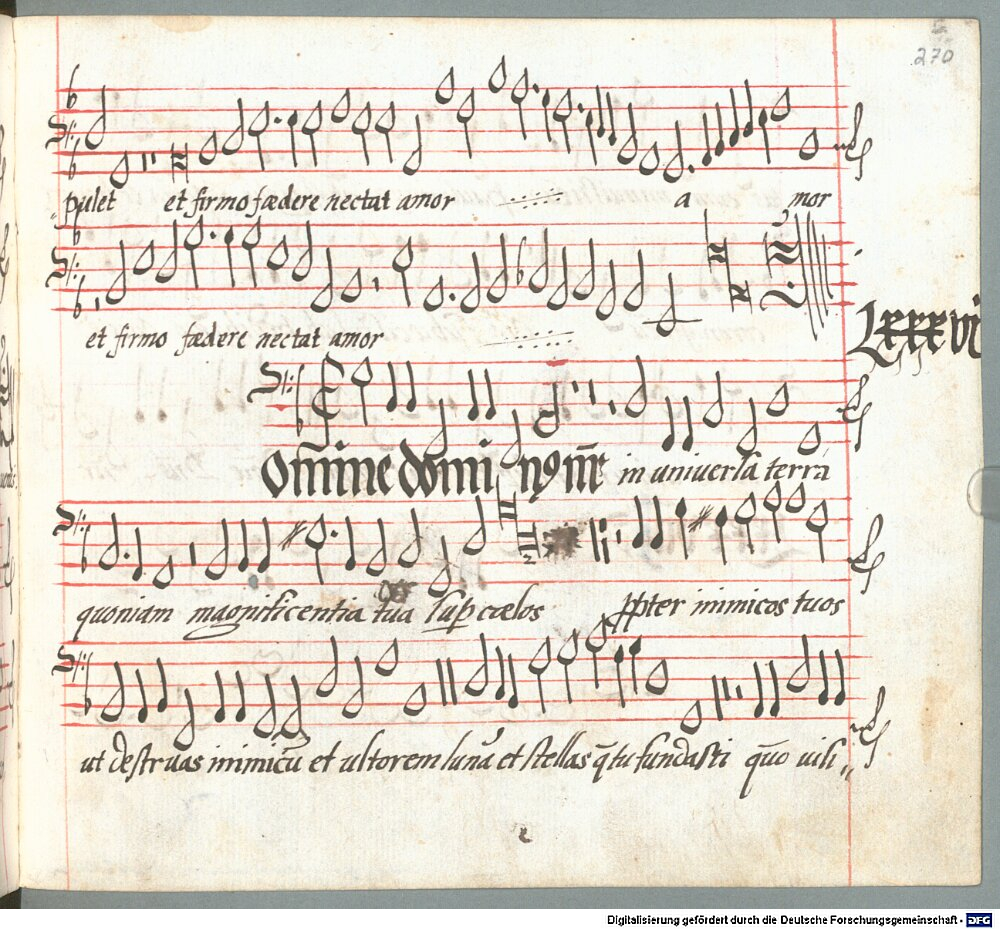 270
pulet et firmo fædere nectat amor a mor
et firmo fædere nectat amor
Lxxxvi
in universa terra
quoniam magnificentia tua sup cœlos ppter inimicos tuos
ut destruas inimicū et ultorem lunā et stellas q̄ tu fundasti
Digitalisierung gefördert durch die Deutsche Forschungsgemeinschaft - DFG